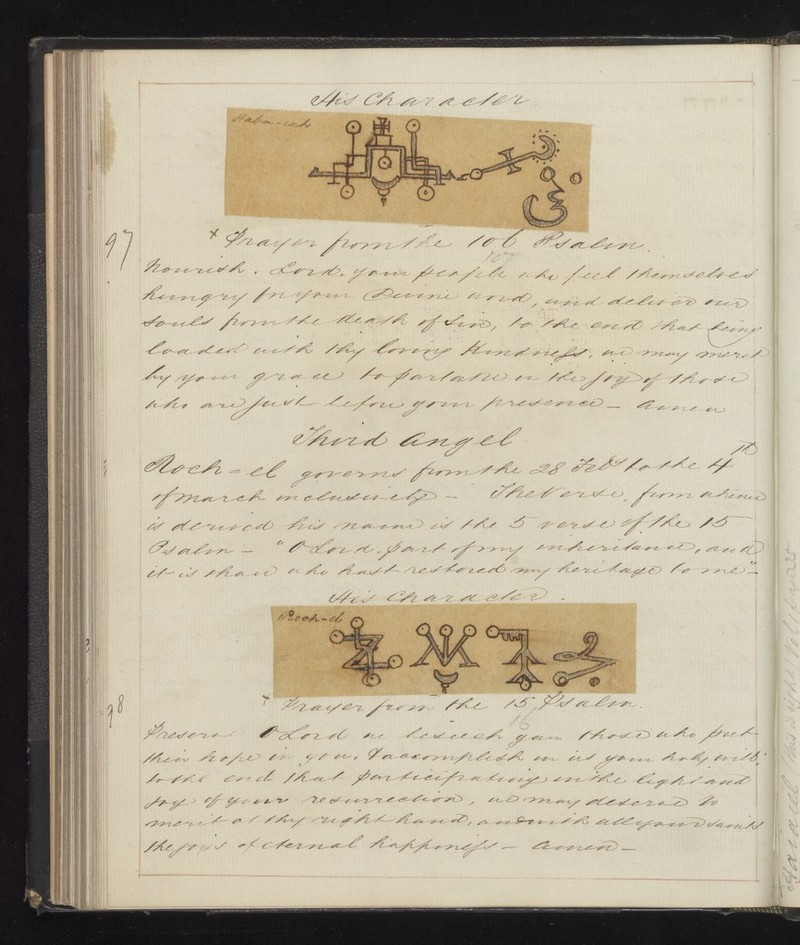 His Character
+ Prayer from the 106 Psalm.
107
97
Nourish. Lord. your people who feel themselves
hungry for your Divine word, and deliver our
souls from the death of Sin, to the end that being
loaded with thy loving Kindness, we may merit
by your grace to partake in the joy of those
who are just before your presence – Amen
Third Angel
Roch-el governs from the 28 Feb to the 4th
of March inclusively – The Verse, from whence
is derived his name is the 5 verse of the 15
Psalm – "O Lord, part of my inheritance, and
it is thou who hast restored my heritage to me" –
His Character.
Roch-el
+ Prayer from the 15 Psalm.
16
98
Preserve O Lord we beseech you those who put
their hope in you, & accomplish in us your holy will,
to the end that participating in the light and
joy of your resurrection, we may deserve to
merit at thy right hand, and with all your Saints
the joys of eternal happiness – Amen –